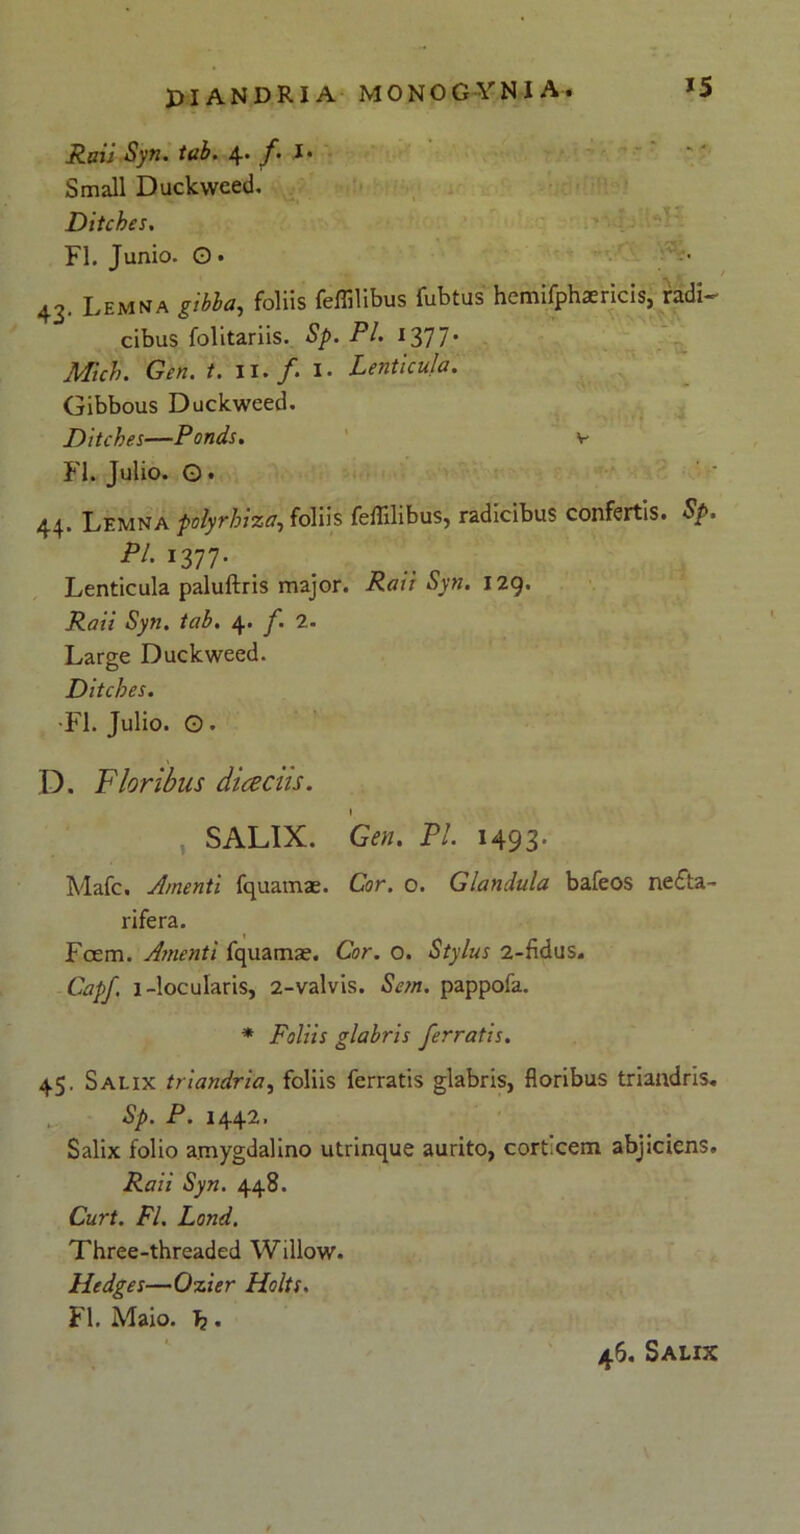 DIANDRIA MONOGYNIA. 15
Raii Syn. tab. 4. f. 1.
Small Duckweed.
Ditches.
Fl. Junio. ☉.
43. LEMNA gibba, foliis ſeſſilibus ſubtus hemiſphæricis, radi-
cibus ſolitariis. Sp. Pl. 1377.
Mich. Gen. t. 11. f. 1. Lenticula.
Gibbous Duckweed.
Ditches—Ponds.
Fl. Julio. ☉.
44. LEMNA polyrhiza, foliis ſeſſilibus, radicibus confertis. Sp.
Pl. 1377.
Lenticula paluſtris major. Raii Syn. 129.
Raii Syn. tab. 4. f. 2.
Large Duckweed.
Ditches.
Fl. Julio. ☉.
D. Floribus diæciis.
SALIX. Gen. Pl. 1493.
Maſc. Amenti ſquamæ. Cor. 0. Glandula baſeos necta-
rifera.
Fœm. Amenti ſquamæ. Cor. 0. Stylus 2-fidus.
Capſ. 1-locularis, 2-valvis. Sem. pappoſa.
* Foliis glabris ſerratis.
45. SALIX triandria, foliis ſerratis glabris, floribus triandris.
Sp. P. 1442.
Salix folio amygdalino utrinque aurito, corticem abjiciens.
Raii Syn. 448.
Curt. Fl. Lond.
Three-threaded Willow.
Hedges—Ozier Holts.
Fl. Maio. ♄.
46. SALIX